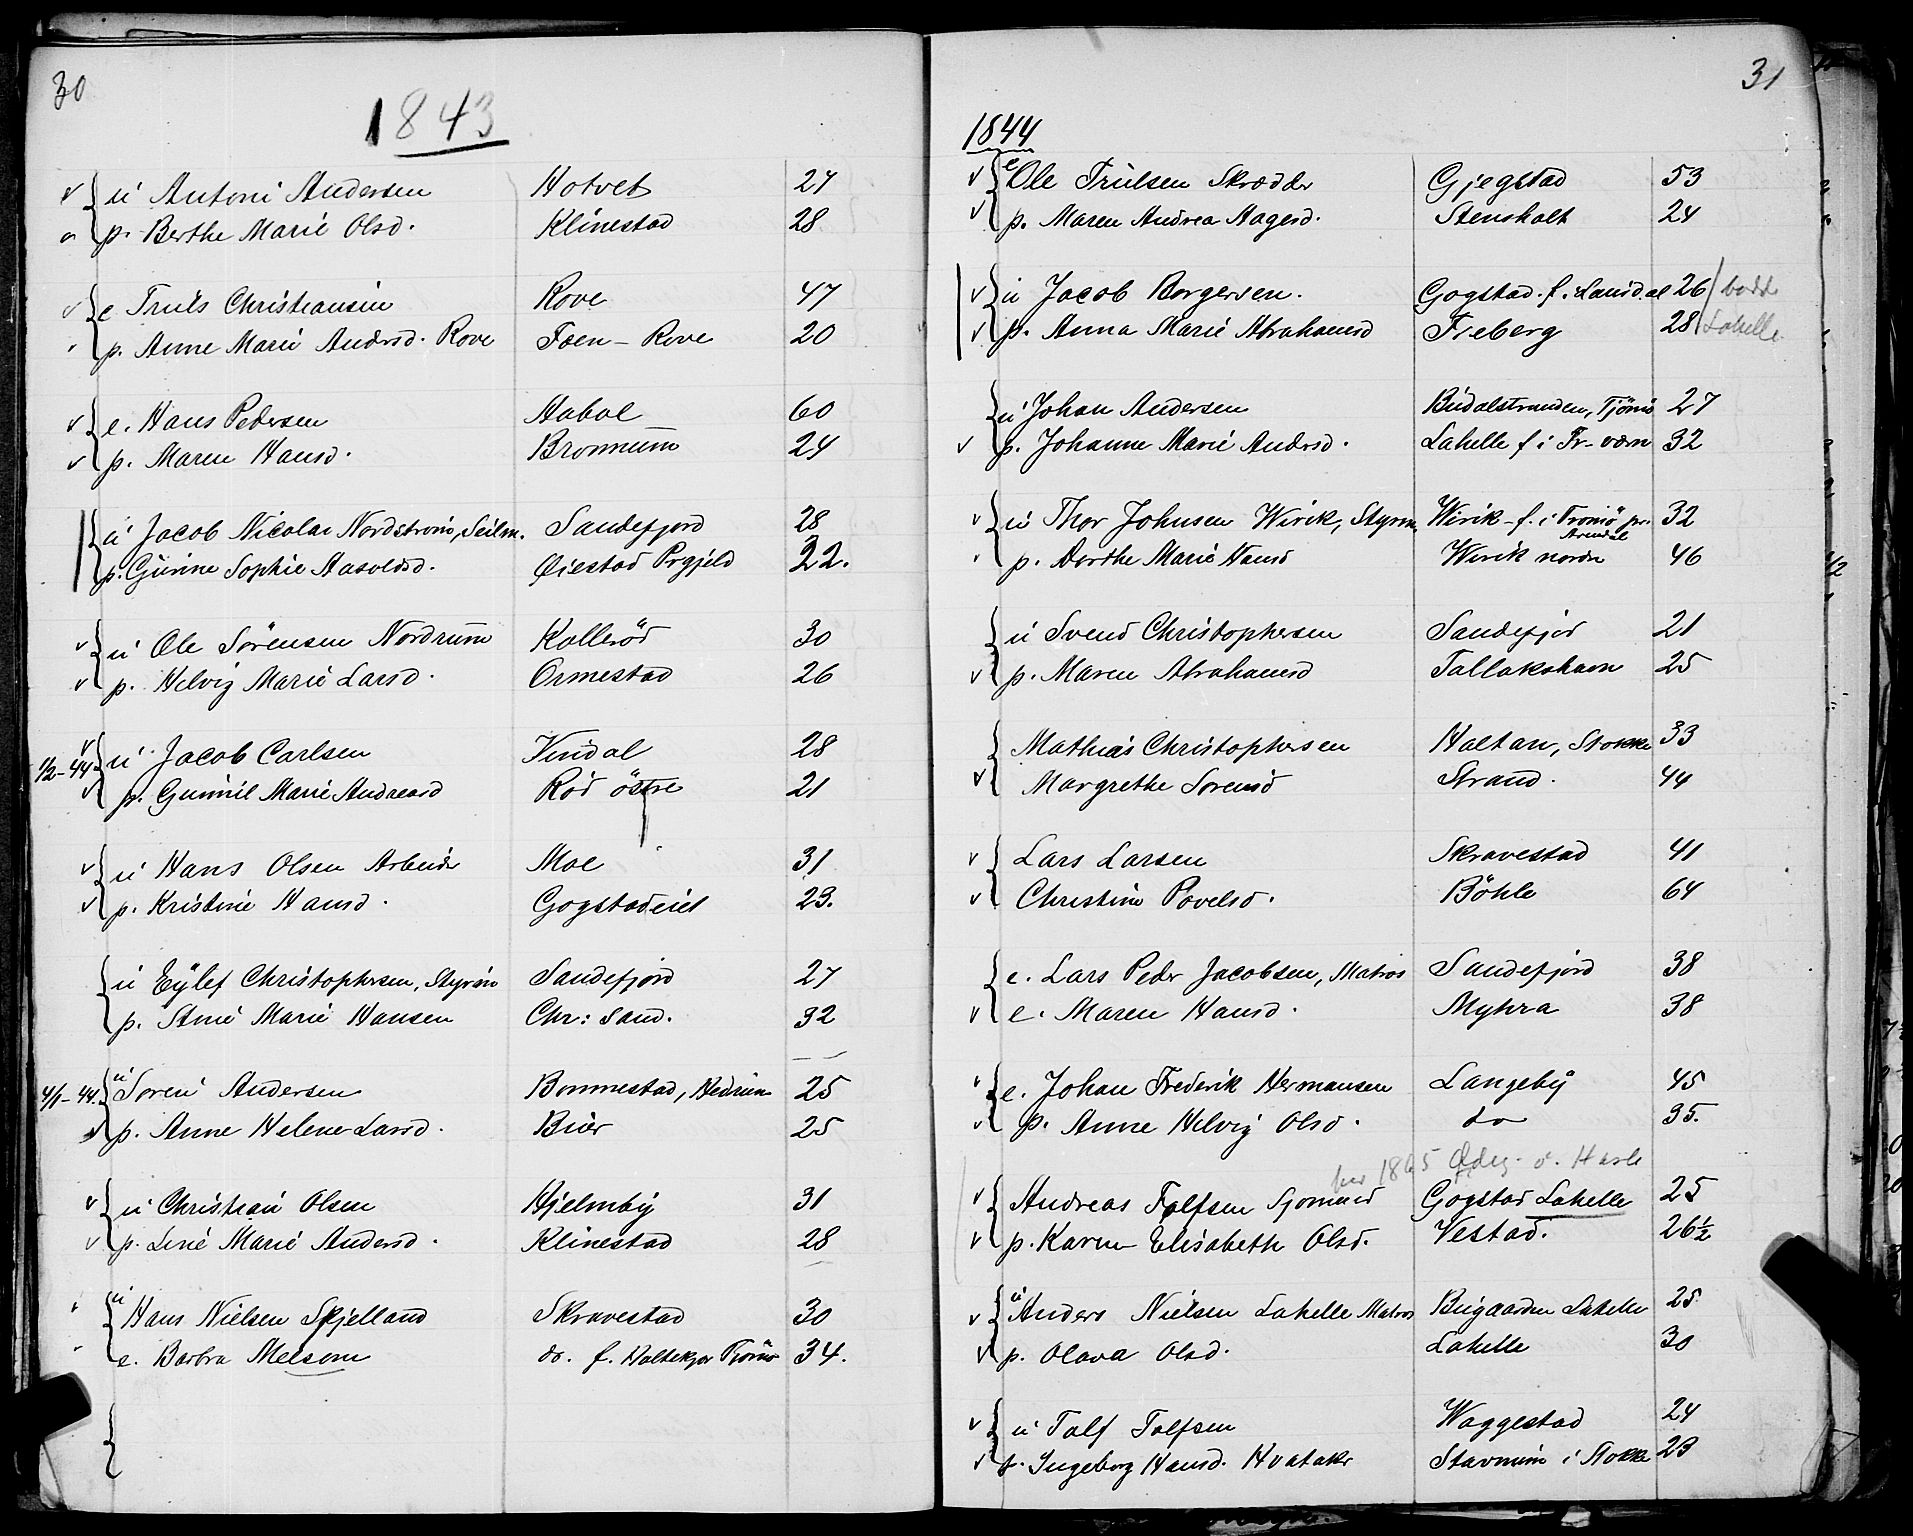 30
1843
v { u Antoni Andersen Hotvet 27
p. Berthe Marie Olsd. Klinestad 28
v { e Truls Christiansen Rove 47
p. Anne Marie Andersd. Rove Foen - Rove 20
v { e. Hans Pedersen Habal 60
v p. Maren Hansd. Bronnum 24
{ u Jacob Nicolai Nordstrøm, Seilm. Sandefjord 28
p. Gurine Sophie Aasoldsd. Øiestad Prgjeld 22.
v { u Ole Sörensen Nordrum Kolleröd 30
v p. Helvig Marie Larsd. Ormestad 26
v 1/2-44 { u Jacob Carlsen Vindal 28
v p. Gunnil Marie Andreasd Röd östre 21
v { u Hans Olsen Arbeider Moe 31
v p. Kristine Hansd. Gogstadeiet 23.
{ u Eylef Christophersen, Styrm Sandefjord 27
p. Stine Marie Hansen Chr: Sand. 32
4/1-44. { u Soren Andersen Bommestad, Hedrum 25
p. Anne Helene Larsd. Buer 25
v { u Christian Olsen Hjelmby 31
v p. Line Marie Andersd. Klinestad 28
v { u Hans Nielsen Skjelland Skravestad 30
e. Barbra Melsom do. f. Holtekjær Tjömö 34.
31
1844
v { e Ole Trulsen Skrædder Gjegstad 53
v p. Maren Andrea Aagesd. Stensholt 24
v { u Jacob Borgersen. Gogstad. f. Lausdal 26 bodde
v p. Anna Marie Abrahamsd Freberg 28 Lahelle
{ u Johan Andersen Budalstranden, Tjömö 27
v p. Johanne Marie Andersd. Lahelle f i Fr-værn 32
v { u Thor Johnsen Wirik, Styrm. Wirik - f. i Tromö pr. 32
Arendal
p. Dorthe Marie Hansd Wirik nordre 46
{ u Svend Christophersen Sandefjord 21
v p. Maren Abrahamsd Tallakshavn 25
{ Mathias Christophersen Haltan, Stokke 33
v Margrethe Sorensd Strand. 44
v { Lars Larsen Skravestad 41
v Christine Povelsd. Böhle 64
{ e. Lars Peder Jacobsen, Matros Sandefjord 38
v e. Maren Hansd. Myhra 38
v { e. Johan Frederik Hermansen Langeby 45
v p. Anne Helvig Olsd. do 35.
1865 Ødeg. v. Hasle
v { Andreas Folfsen Sjomand Gogstad Lahelle 25
v p. Karen Elisabeth Olsd. Vestad. 26½
v { u Anders Nielsen Lahelle Matros Bugaarden Lahelle 25
v p. Olava Olsd. Lahelle 30
v { u Tolf Tolfsen Waggestad 24
v p. Ingeborg Hansd. Hvataker Stavnum i Stokke 23